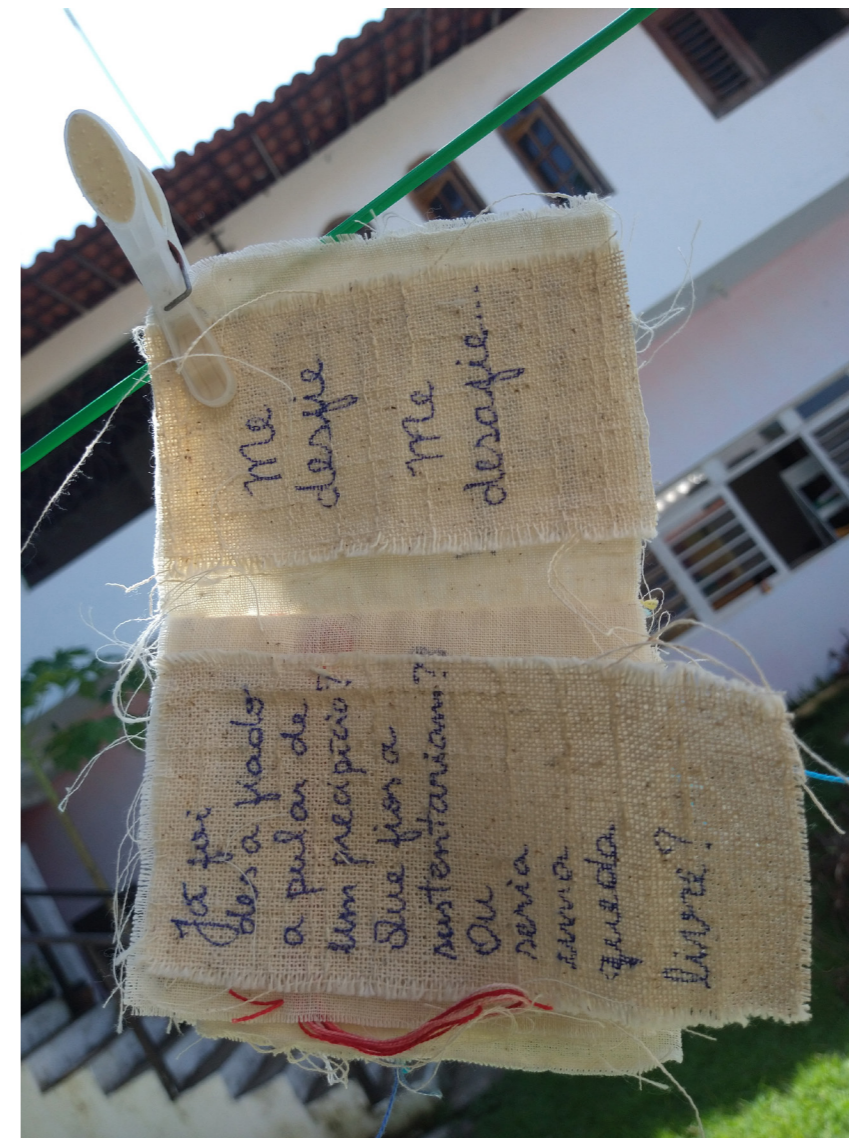 Me
desfie
Me
desafie...
Já foi
desafiado
a pular de
um precipício?
Que fios a
sustentariam?
Ou
seria
uma
queda
livre?